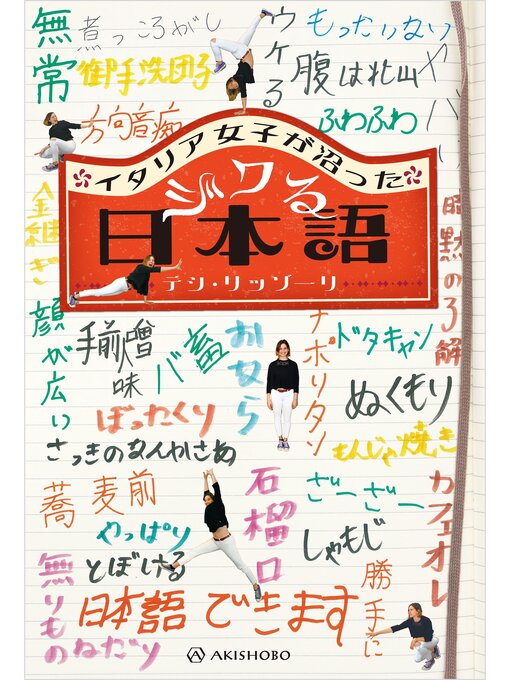 無常
煮っころがし
ウケる
もったいない
ヤバい
御手洗団子
腹は北山
方向音痴
ふわふわ
イタリア女子が沼った
ジワる
日本語
テシ・リッゾーリ
金継ぎ
暗黙の了解
顔が広い
手前味噌
バ畜
おなら
ナポリタン
ドタキャン
ぬくもり
ぼったくり
もんじゃ焼き
さっきのなんかさあ
蕎麦前
石榴口
ざーざー
カフェオレ
やっぱり
しゃもじ
とぼける
無いものねだり
勝手に
日本語できます
AKISHOBO